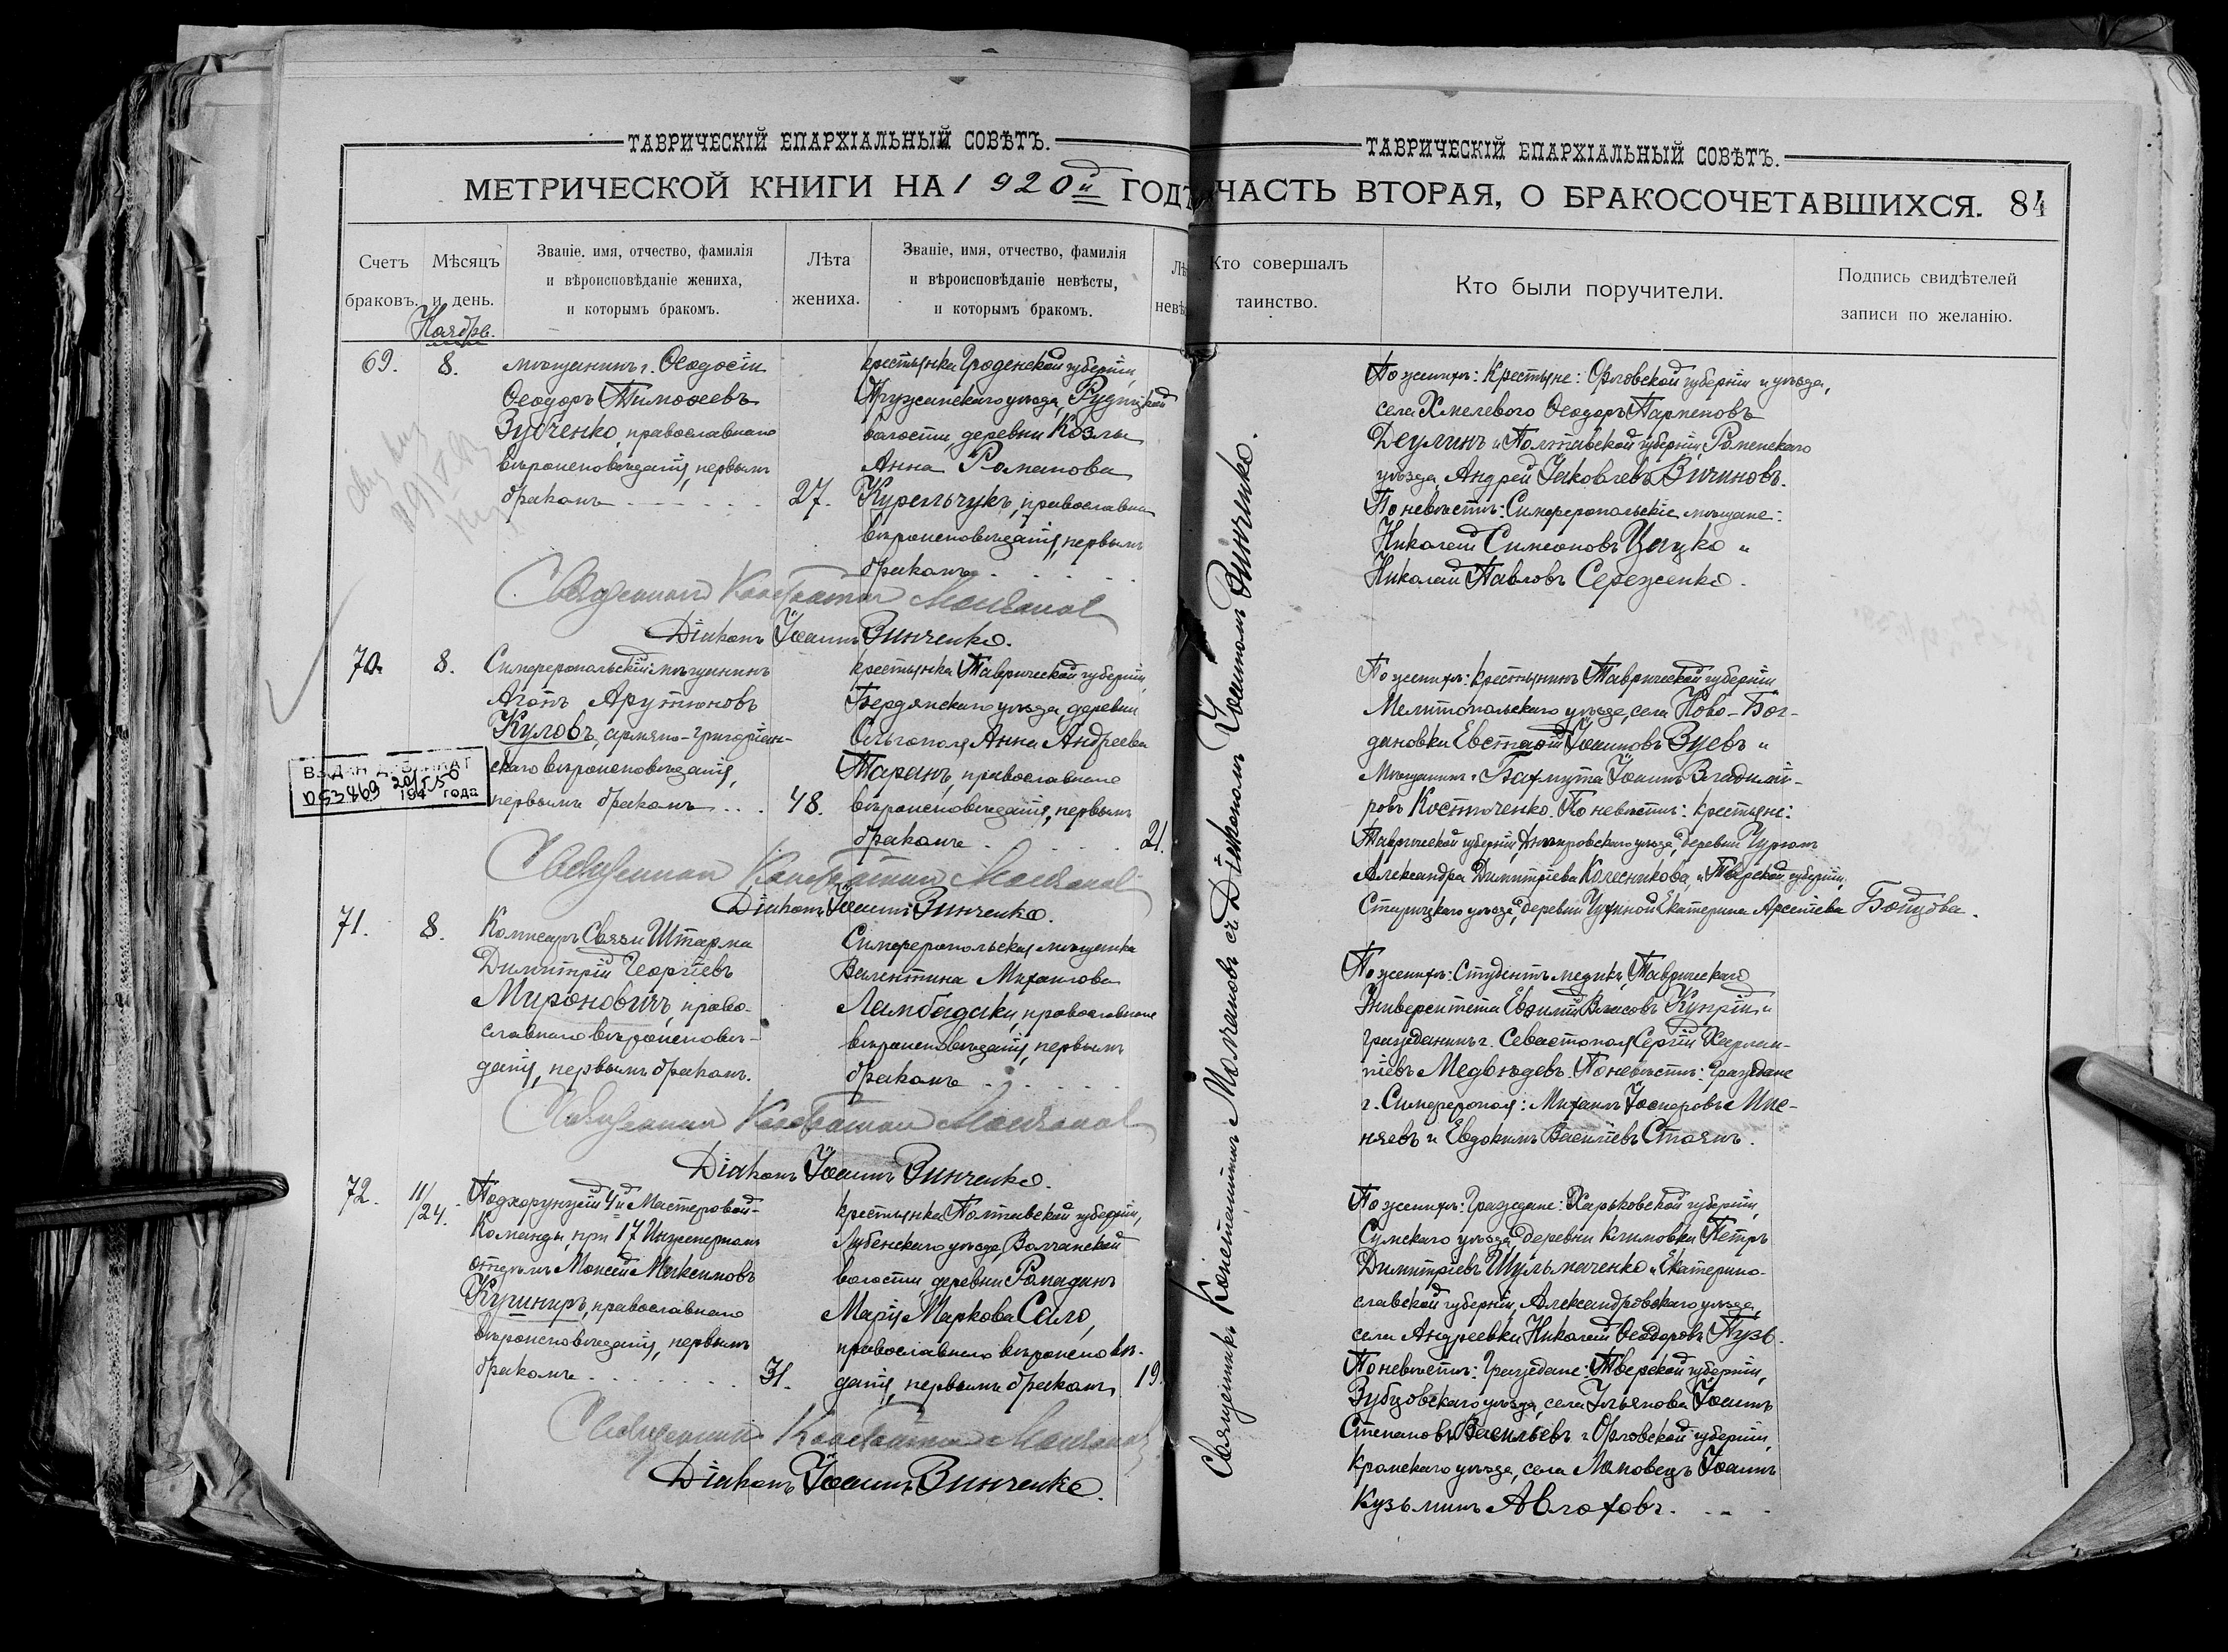 ТАВРИЧЕСКІЙ ЕПАРХІАЛЬНЫЙ СОВѢТЪ.
МЕТРИЧЕСКОЙ КНИГИ НА 1920й ГОДЪ
Счетъ браковъ.
Мѣсяцъ и день.
Званіе, имя, отчество, фамилія
и вѣроисповѣданіе жениха,
и которымъ бракомъ.
Лѣта жениха.
Званіе, имя, отчество, фамилія
и вѣроисповѣданіе невѣсты,
и которымъ бракомъ.
Ноябрь.
69.
8.
мѣщанинъ г. Ѳеодосіи
Ѳеодоръ Тимоѳеевъ
Зубченко, православнаго
вѣроисповѣданія, первымъ
бракомъ
27.
крестьянка Гроденской губерніи,
Пружанскаго уѣзда, Рудницкой
волости, деревни Козлы
Анна Романова
Курельчукъ, православн
вѣроисповѣданія, первымъ
бракомъ
Священникъ Константинъ Молчановъ
Діаконъ Іоаннъ Винченко.
70.
8.
Симферопольскій мѣщанинъ
Агопъ Арутюновъ
Куловъ, армяно-григоріан-
скаго вѣроисповѣданія,
первымъ бракомъ
48.
крестьянка Таврической губерніи,
Бердянскаго уѣзда, деревни
Ольгополя Анна Андреева
Таранъ, православнаго
вѣроисповѣданія, первымъ
бракомъ
21.
194 года
Священникъ Константинъ Молчановъ
Діаконъ Іоаннъ Винченко.
71.
8.
Комисаръ Связи Штарма
Димитрій Георгіевъ
Мироновичъ, право-
славнаго вѣроисповѣ-
данія, первымъ бракомъ.
Симферопольская мѣщанка
Валентина Михаилова
Ламбадаки, православнаго
вѣроисповѣданія, первымъ
бракомъ
Священникъ Константинъ Молчановъ
Діаконъ Іоаннъ Винченко.
72.
11/24.
Подхорунжій 4й Мастеровой
Команды, при 17 Инженерномъ
отдѣлѣ Моисей Максимовъ
Кушниръ, православнаго
вѣроисповѣданія, первымъ
бракомъ
31.
крестьянка Полтавской губерніи,
Лубенскаго уѣзда, Волчанской
волости, деревни Ромаданъ
Марія Маркова Сало,
православнаго вѣроисповѣ-
данія, первымъ бракомъ
19.
Священникъ Константинъ Молчановъ
Діаконъ Іоаннъ Винченко.
ТАВРИЧЕСКІЙ ЕПАРХІАЛЬНЫЙ СОВѢТЪ.
ЧАСТЬ ВТОРАЯ, О БРАКОСОЧЕТАВШИХСЯ. 84
Кто совершалъ таинство.
Кто были поручители.
Подпись свидѣтелей
записи по желанію.
Священникъ Константинъ Молчановъ съ Діакономъ Іоанномъ Винченко.
По женихѣ: Крестьяне: Орловской губерніи и уѣзда,
села Хмелевого Ѳеодоръ Парменовъ
Деулинъ и Полтавской губерніи, Роменскаго
уѣзда, Андрей Іаковлевъ Вичиновъ.
По невѣстѣ: Симферопольскіе мѣщане:
Николай Симеоновъ Уцуко и
Николай Павловъ Сереженко.
По женихѣ: крестьянинъ Таврической губерніи
Мелитопольскаго уѣзда, села Ново-Бог-
дановки Евстафій Іоанновъ Зуевъ и
мѣщанинъ г. Бахмута Іоаннъ Владимі-
ровъ Костюченко. По невѣстѣ: крестьяне:
Таврической губерніи, Днѣпровскаго уѣзда, деревни Чурюмъ
Александра Димитріева Колесникова, и Тверской губерніи,
Старицкаго уѣзда, деревни Екатерина Арсеніева Бойцова.
По женихѣ: Студентъ медикъ Таврическаго
Университета Евфимій Власовъ Купрій и
гражданинъ г. Севастополя Сергій Харлам-
піевъ Медвѣдевъ. По невѣстѣ: граждане
г. Симферополя: Михаилъ Іосифовъ Мис-
няевъ и Евдокимъ Василіевъ Стоянъ.
По женихѣ: Граждане: Харьковской губерніи,
Сумскаго уѣзда, деревни Климовки Петръ
Димитріевъ Шульмаченко и Екатерино-
славской губерніи, Александровскаго уѣзда,
села Андреевки Николай Ѳеодоровъ Пузь.
По невѣстѣ: Граждане: Тверской губерніи,
Зубцовскаго уѣзда, села Ульянова Іоаннъ
Степановъ Васильевъ и Орловской губерніи,
Кромскаго уѣзда, села Ломовецъ Іоаннъ
Кузьминъ Авлоховъ.